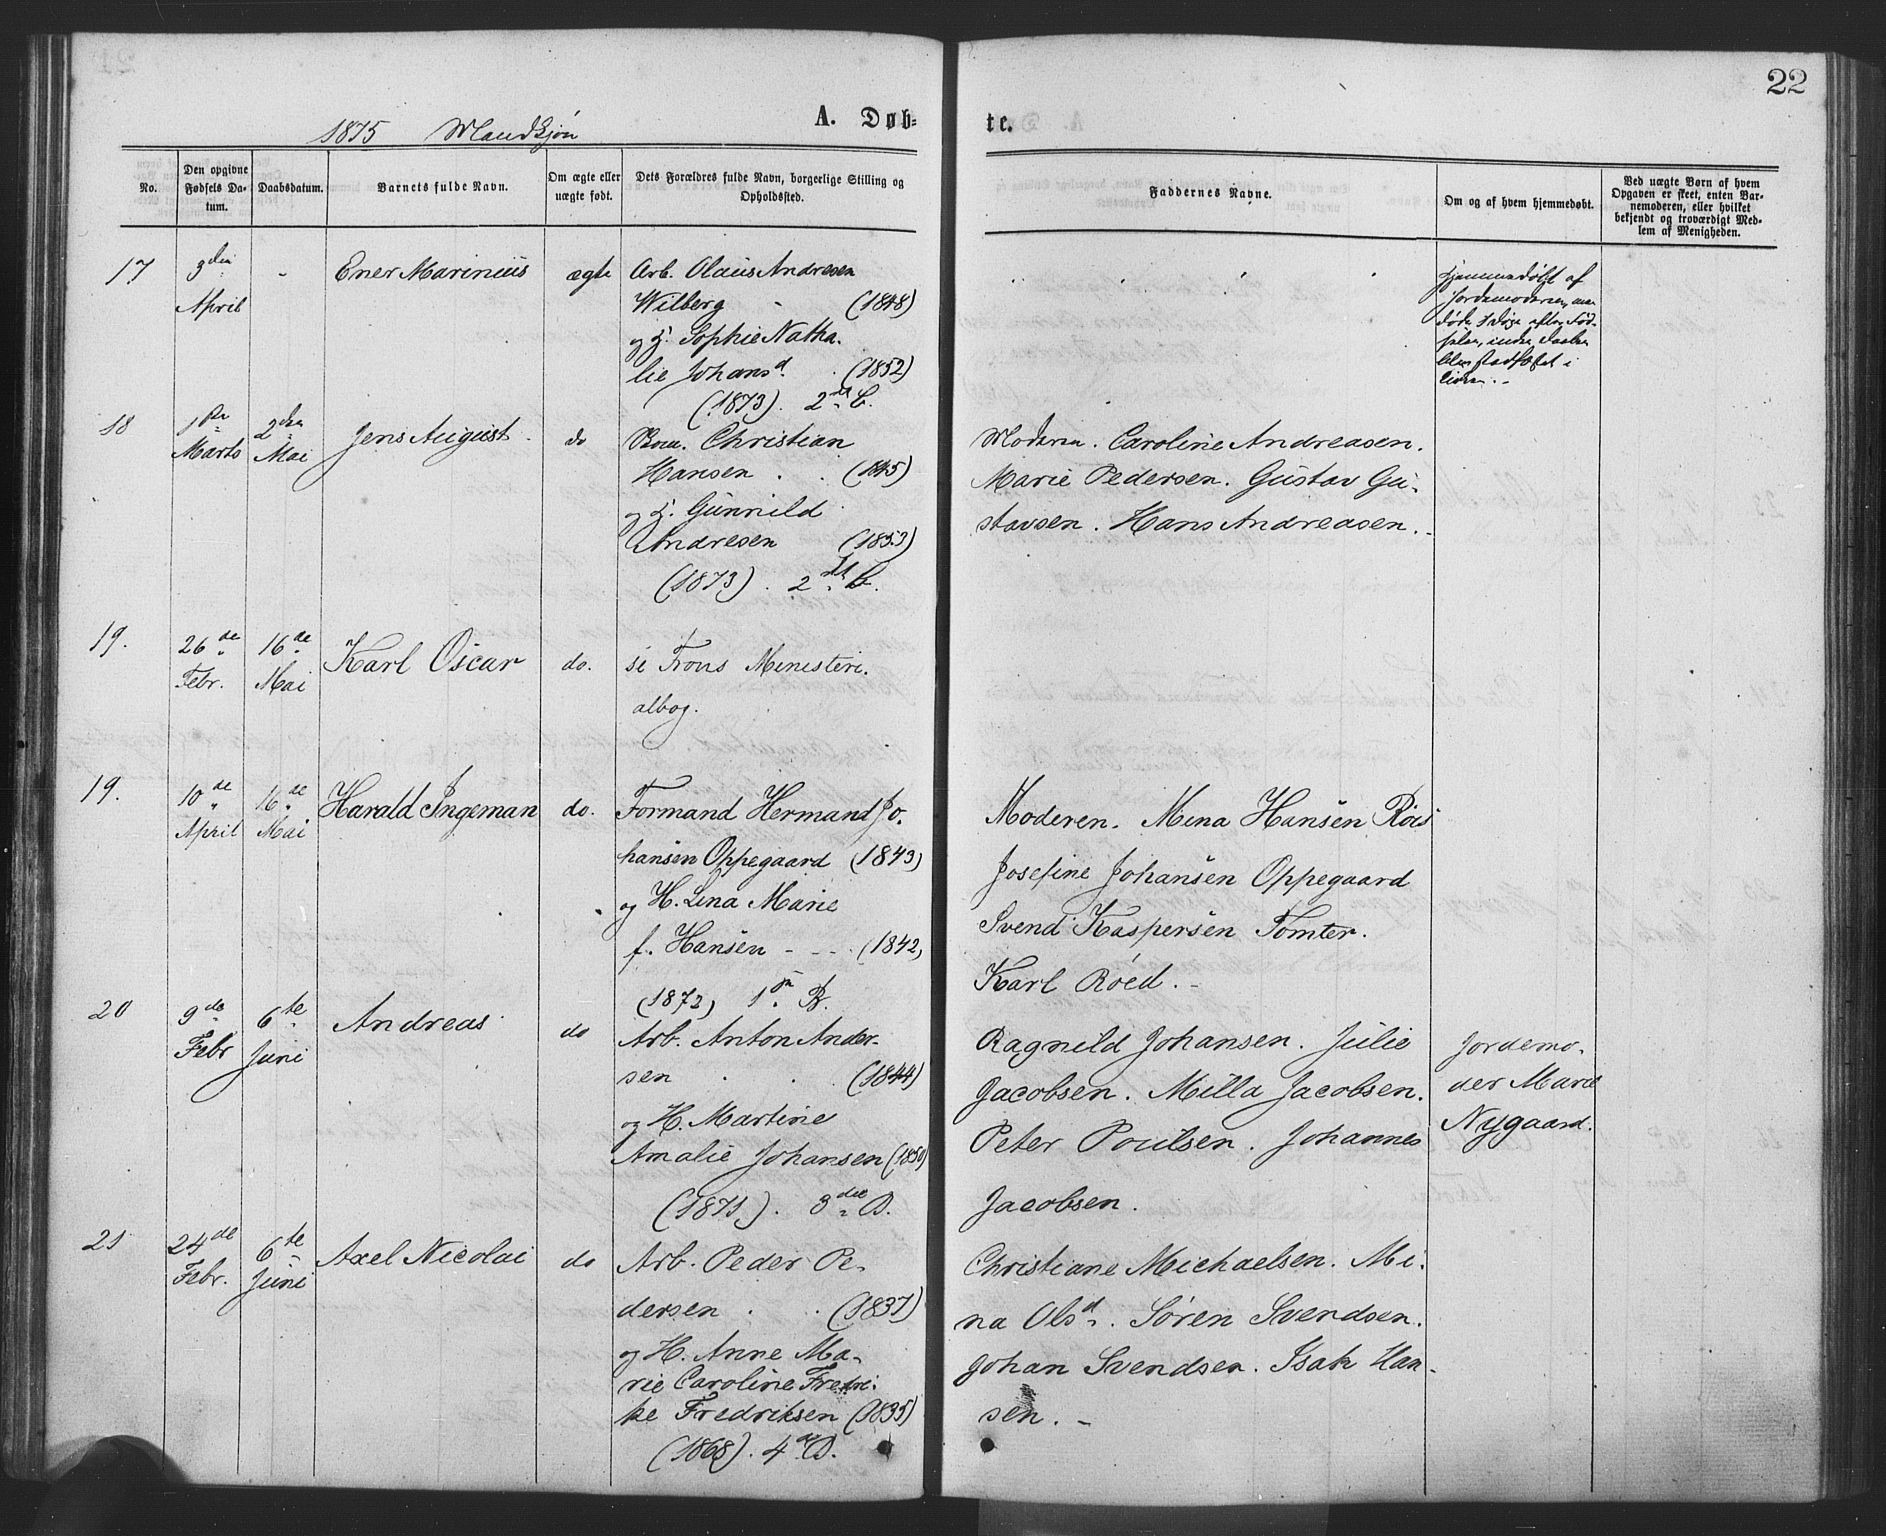 22
1875 Mandkjøn
A. Døb-
te.
No.
Den opgivne Fødsels Da-
tum.
Daabsdatum.
Barnets fulde Navn.
Om ægte eller
uægte født.
Dets Forældres fulde Navn, borgerlige Stilling og
Opholdssted.
Faddernes Navne.
Om og af hvem hjemmedøbt.
Ved uægte Børn af hvem
Opgaven er skeet, enten Bar-
nemoderen, eller hvilket
bekjendt og troværdigt Med-
lem af Menigheden.
17
3den
April
-
Ener Marinius
ægte
Arb. Olaus Andresen
Wilberg - (1848)
og H. Sophie Natha-
lie Johansd. . (1852)
(1873). 2det B.
Hjemmedøbt af
Jordemoderen, men
døde
18
1ste
Marts
2den
Mai
Jens August.
do
Christian
Hansen . . (1845)
og H. Gunnild
Andresen (1853)
(1873). 2det B.
Moderen. Caroline Andreasen.
Marie Pedersen. Gustav Gu-
stavsen. Hans Andreasen. -
19.
26de
Febr.
16de
Mai
Karl Oscar
do.
se Frons Ministeri-
albog.
19.
10de
April
16de
Mai
Harald Ingeman
do.
Formand Hermand Jo-
hansen Oppegaard (1843)
og H. Lina Marie
f. Hansen - - - (1842)
(1872) 1ste B.
Moderen. Mina Hansen Röis
Josefine Johansen Oppegaard
Svend Kaspersen Tomter.
Karl Röed. -
20
9de
Febr
6te
Juni
Andreas
do
Arb. Anton Ander-
sen . . (1844)
og H. Martine
Amalie Johansen (1850)
(1871). 3die B.
Ragnild Johansen. Julie
Jacobsen. Milla Jacobsen.
Peter Poulsen. Johannes
Jacobsen.
Jordemo-
der Marie
Nygaard.
21
24de
Febr.
6te
Juni
Axel Nicolai
do
Arb. Peder Pe-
dersen . . (1837)
og H. Anne Ma-
rie Caroline Fredri-
ke Fredriksen (1835)
(1868). 4de B.
Christiane Michaelsen. Mi-
na Olsd. Søren Svendsen.
Johan Svendsen. Isak Han-
sen. -